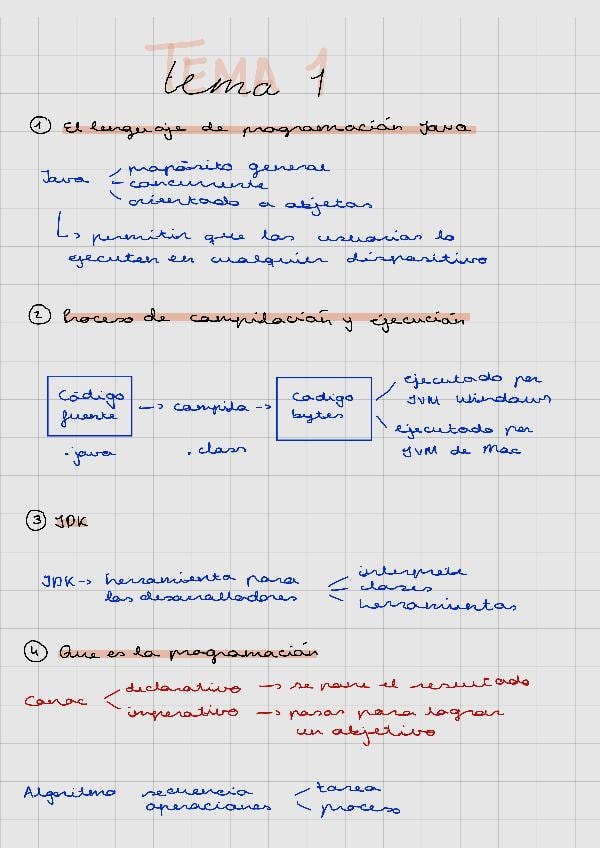 TEMA 1
tema 1
① El lenguaje de programación Java
Java
propósito general
concurrente
orientado a objetos
↳ permitir que los usuarios lo
ejecuten en cualquier dispositivo
② Proceso de compilación y ejecución
Código
fuente
→ compila →
Codigo
bytes
ejecutado por
JVM Windows
ejecutado por
JVM de Mac
.java
.class
③ JDK
JDK → herramienta para
los desarrolladores
interprete
clases
herramientas
④ Que es la programación
declarativo → se pone el resultado
imperativo → pasos para lograr
un objetivo
Algoritmo
secuencia
operaciones
tarea
proceso